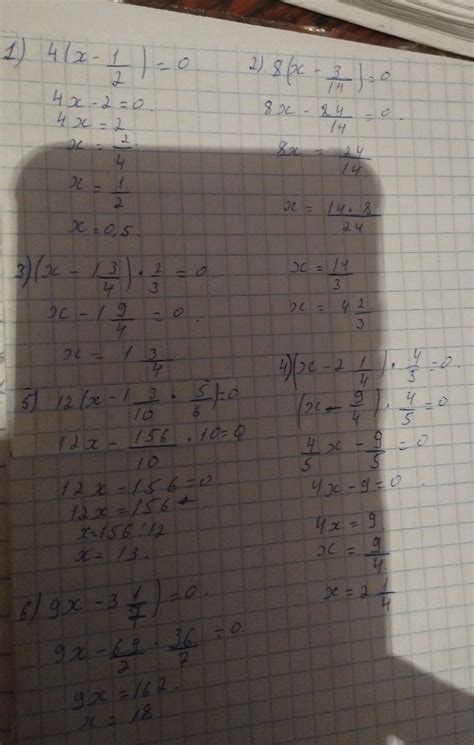 1) 4(x - 1/2) = 0.
4x - 2 = 0.
4x = 2
x = 2/4
x = 1/2
x = 0,5.
2) 8(x - 3/14) = 0
8x - 24/14 = 0.
8x = 24/14
x = 14 * 8/24
x = 14/3
x = 4 2/3
3) (x - 1 3/4) · 2/3 = 0.
x - 1 9/4 = 0.
x = 1 3/4
4) (x - 2 1/4) · 4/3 = 0.
(x - 9/4) · 4/5 = 0
4/5 x - 9/5 = 0
4x - 9 = 0.
4x = 9.
x = 9/4
x = 2 1/4
5) 12(x - 1 3/10 · 5/6) = 0
12x - 156/10 · 10 = 0
12x - 156 = 0
12x = 156
x = 156 : 12
x = 13.
6) 9x - 3 1/7) = 0.
9x - 69/2 · 36/7 = 0.
9x = 162.
x = 18